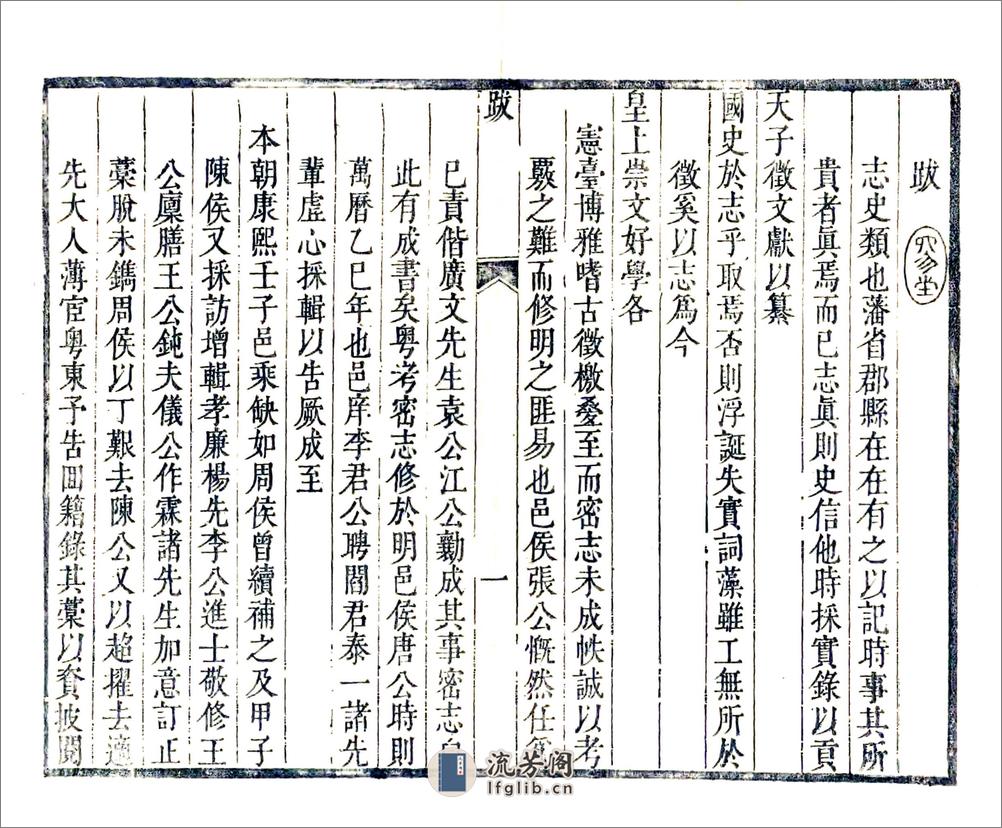 跋
志史類也藩省郡縣在在有之以記時事其所
貴者眞焉而已志眞則史信他時採實錄以貢
天子徵文獻以纂
國史於志乎取焉否則浮誕失實詞藻雖工無所於
徵奚以志爲今
皇上崇文好學各
憲臺博雅嗜古徵檄叠至而密志未成帙誠以考
覈之難而修明之匪易也邑侯張公慨然任爲
跋
一
已責偕廣文先生袁公江公勷成其事密志自
此有成書矣粤考密志修於明邑侯唐公時則
萬曆乙巳年也邑庠李君公聘閻君泰一諸先
輩虛心採輯以告厥成至
本朝康熙壬子邑乘缺如周侯曾續補之及甲子
陳侯又採訪增輯孝廉楊先李公進士敬修王
公廩膳王公鈍夫儀公作霖諸先生加意訂正
藁脫未鐫周侯以丁艱去陳公又以超擢去適
先大人薄宦粤東予告囬籍錄其藁以賫披閱
流芳阁
lfglib.cn